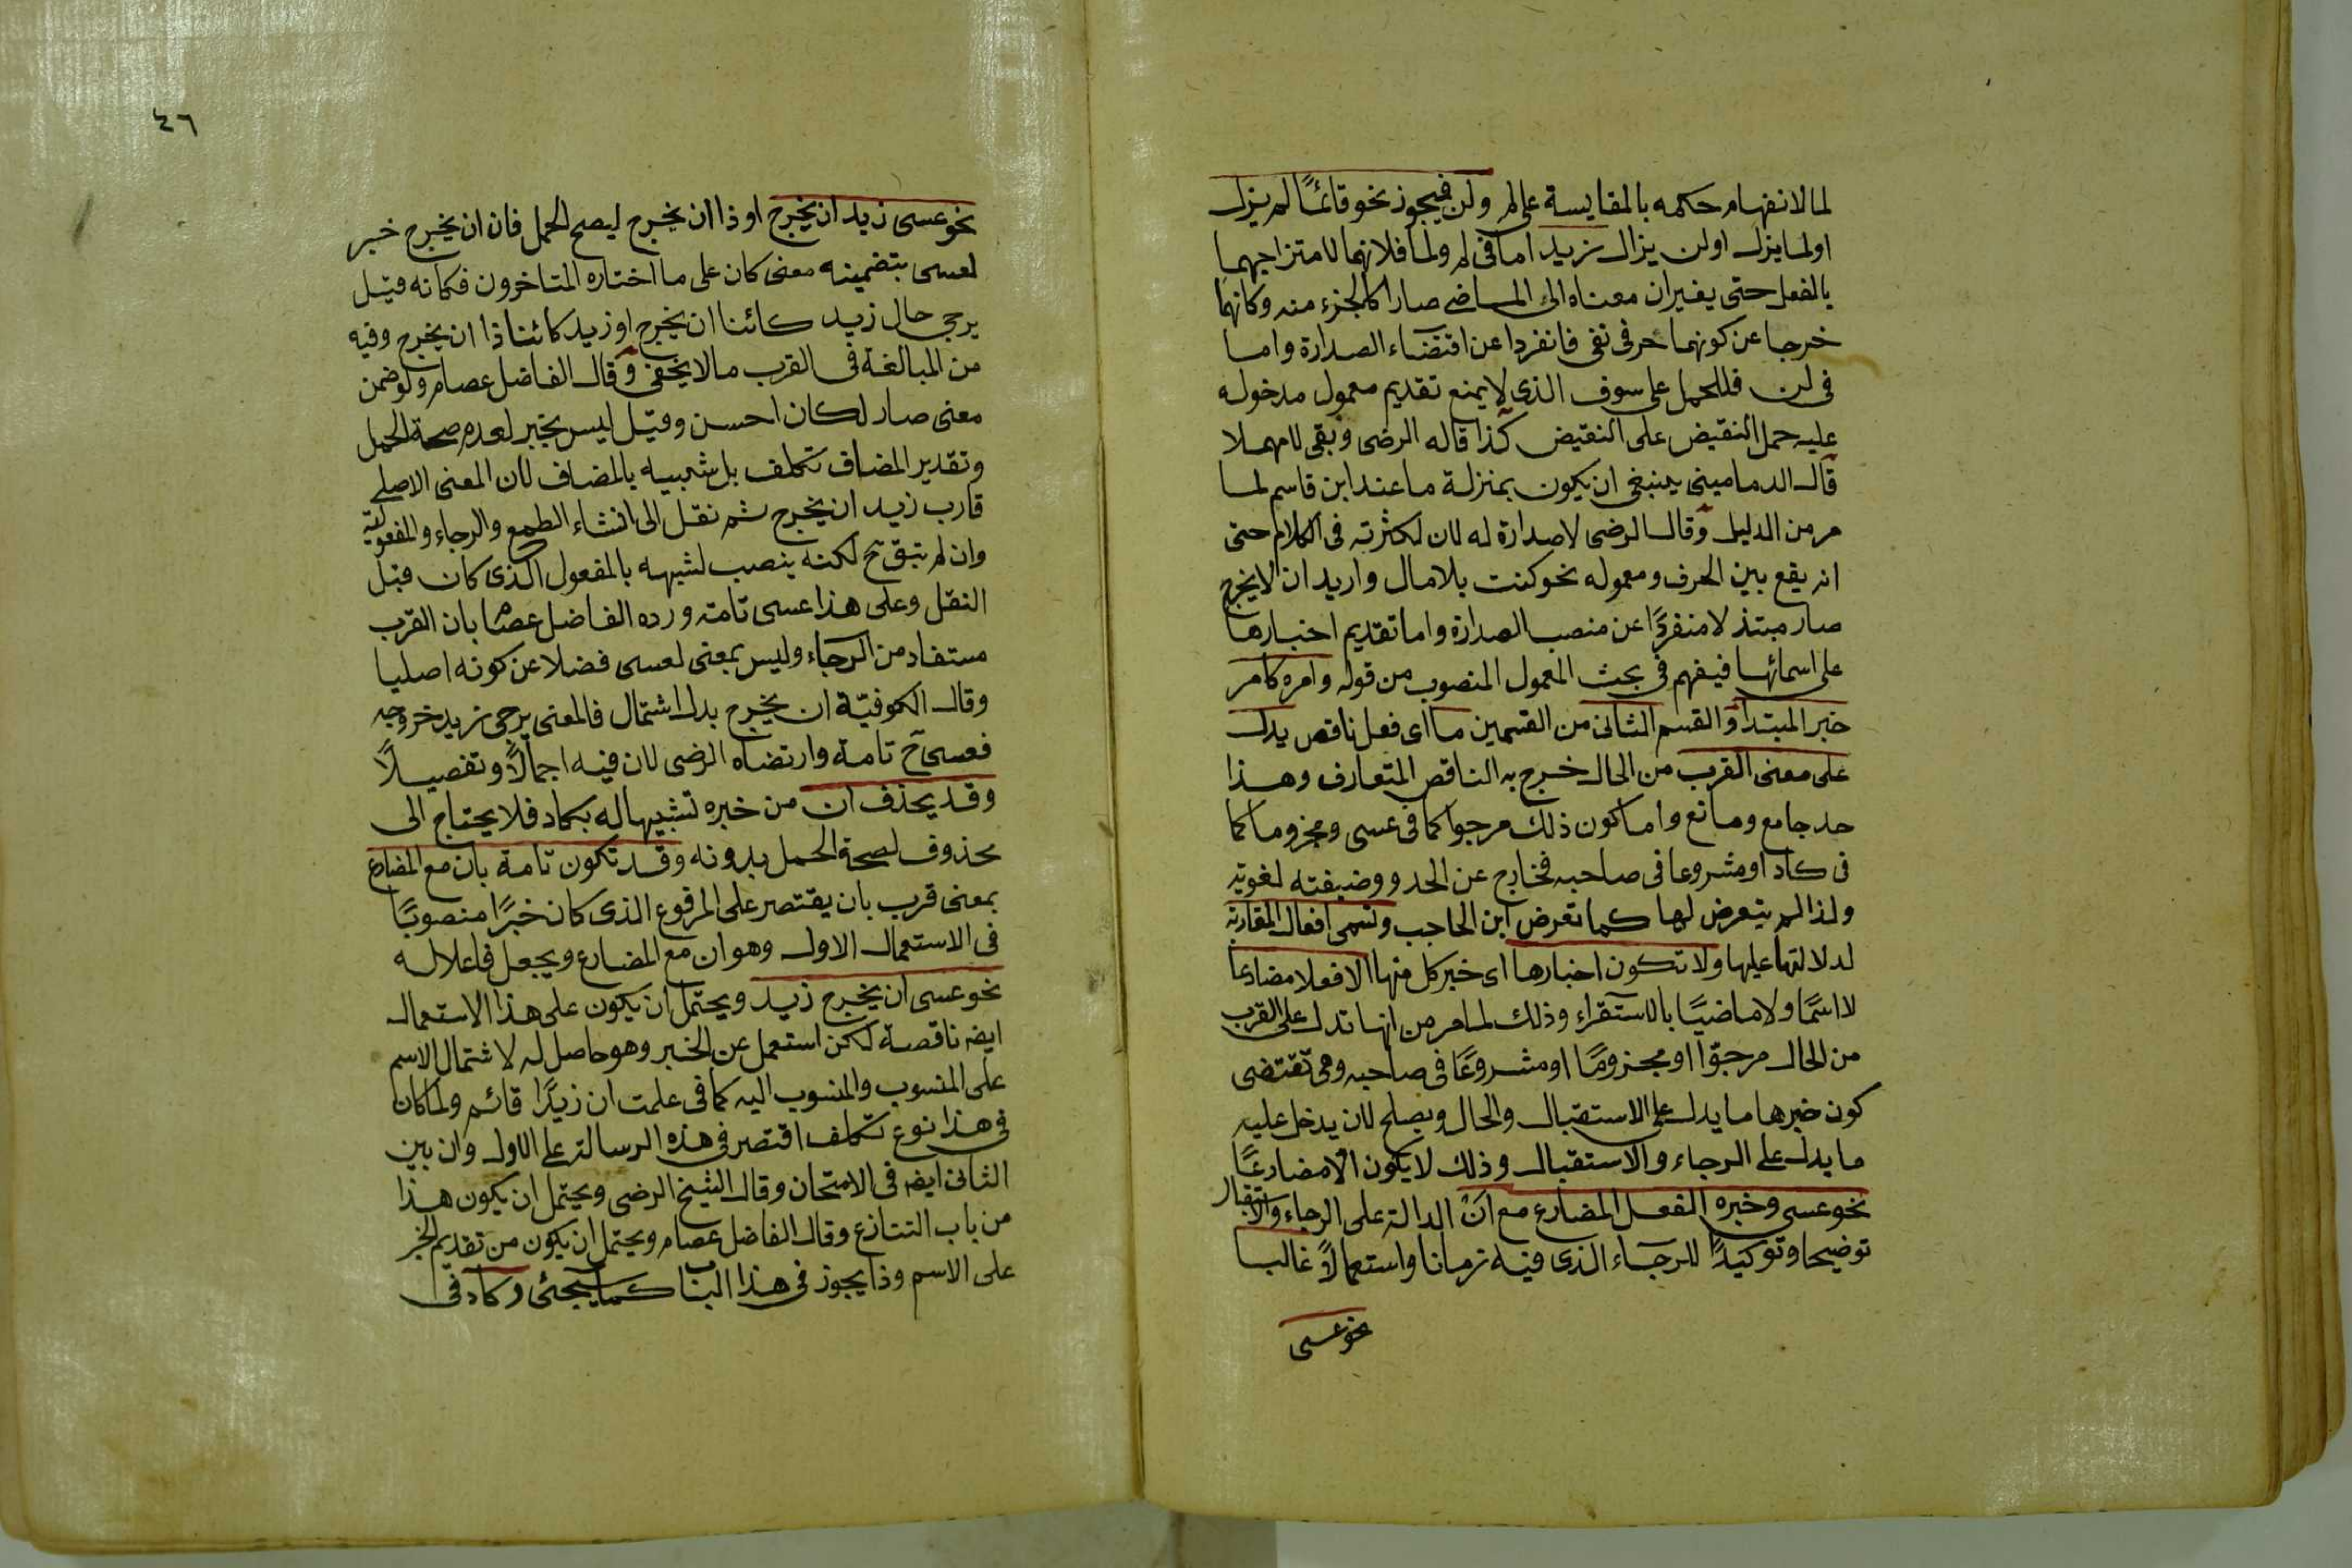 لما لانفهام حكمه بالمقايسة على لم ولن فيجوز نحو قائمًا لم يزل
اولما يزل اولن يزال زيد اما في لم ولما فلانهما لامتزاجهما
بالفعل حتى يغيران معناه الى الماضى صارا كالجزء منه وكانهما
خرجا عن كونهما حرفى نفى فانفردا عن اقتضاء الصدارة واما
فى لن فللحمل على سوف الذى لا يمنع تقديم معمول مدخوله
عليه حمل النقيض على النقيض كذا قاله الرضى وبقى لا مهملا
قال الدمامينى ينبغى ان يكون بمنزلة ما عند ابن قاسم لما
مر من الدليل وقال الرضى لا صدارة له لان لكثرته فى الكلام حتى
انه يقع بين الحرف ومعموله نحو كنت بلا مال واريد ان لا يخرج
صار مبتذلا منفردًا عن منصب الصدارة واما تقديم اخبارها
على اسمائها فيفهم فى بحث المعمول المنصوب من قوله وامره كامر
خبر المبتدأ والقسم الثانى من القسمين ما اى فعل ناقص يدل
على معنى القرب من الحال خرج به الناقص المتعارف وهذا
حد جامع ومانع واما كون ذلك مرجوا كما فى عسى ومجزوما كما
فى كاد او مشروعا فى صاحبه فخارج عن الحد ووضيفته لغوية
ولذا لم يتعرض لها كما تعرض ابن الحاجب وتسمى افعال المقاربة
لدلالتها عليها ولا تكون اخبارها اى خبر كل منها الا فعلا مضارعا
لا اسمًا ولا ماضيًا بالاستقراء وذلك لما مر من انها تدل على القرب
من الحال مرجوّا او مجزومًا او مشروعًا فى صاحبه وهى تقتضى
كون خبرها ما يدل على الاستقبال والحال ويصلح لان يدخل عليه
ما يدل على الرجاء والاستقبال وذلك لا يكون الا مضارعًا
نحو عسى وخبره الفعل المضارع مع انْ الدالة على الرجاء والاستقبال
توضيحا وتوكيدًا للرجاء الذى فيه زمانا واستعمالًا غالبا
نحو عسى
٤٦
نحو عسى زيد ان يخرج او ذا ان يخرج ليصح الحمل فان ان يخرج خبر
لعسى بتضمينه معنى كان على ما اختاره المتاخرون فكانه قيل
يرجى حال زيد كائنا ان يخرج او زيد كائنا ذا ان يخرج وفيه
من المبالغة فى القرب مالا يخفى وقال الفاضل عصام ولو ضمن
معنى صار لكان احسن وقيل ليس بخبر لعدم صحة الحمل
وتقدير المضاف تكلف بل شبيه بالمضاف لان المعنى الاصلى
قارب زيد ان يخرج ثم نقل الى انشاء الطمع والرجاء والمفعولية
وان لم تبق ح لكنه ينصب لشبهه بالمفعول الذى كان قبل
النقل وعلى هذا عسى تامة ورده الفاضل عصام بان القرب
مستفاد من الرجاء وليس بمعنى لعسى فضلا عن كونه اصليا
وقال الكوفيّة ان يخرج بدل اشتمال فالمعنى يرجى زيد خروجه
فعسى ح تامة وارتضاه الرضى لان فيه اجمالًا وتفصيلًا
وقد يحذف ان من خبره تشبيها له بكاد فلا يحتاج الى
محذوف لصحة الحمل بدونه وقد تكون تامة بان مع المضارع
بمعنى قرب بان يقتصر على المرفوع الذى كان خبرًا منصوبًا
فى الاستعمال الاول وهو ان مع المضارع ويجعل فاعلا له
نحو عسى ان يخرج زيد ويحتمل ان يكون على هذا الاستعمال
ايضا ناقصة لكن استعمل عن الخبر وهو حاصل له لاشتمال الاسم
على المنسوب والمنسوب اليه كما فى علمت ان زيدًا قائم ولما كان
فى هذا نوع تكلف اقتصر فى هذه الرسالة على الاول وان بين
الثانى ايضا فى الامتحان وقال الشيخ الرضى ويحتمل ان يكون هذا
من باب التنازع وقال الفاضل عصام ويحتمل ان يكون من تقديم الخبر
على الاسم وذا يجوز فى هذا الباب كما سيجئ وكاد فى